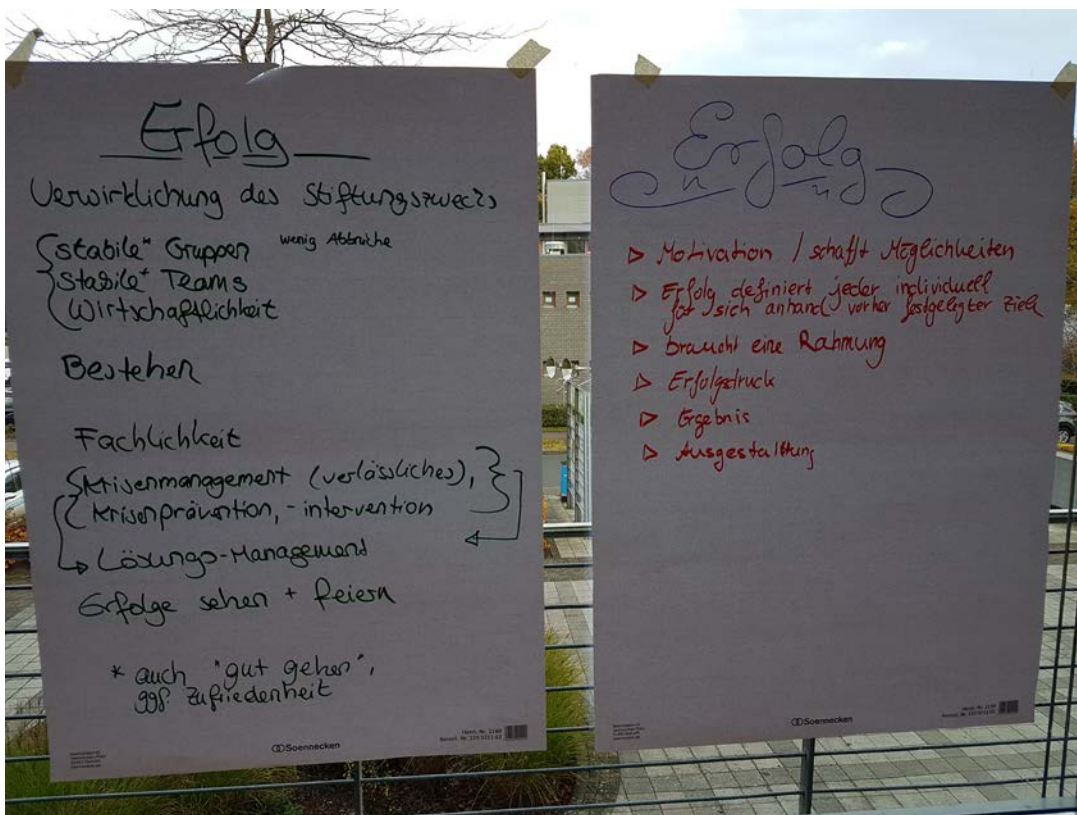 Erfolg
Verwirklichung des Stiftungszwecks
stabile* Gruppen wenig Abbrüche
stabile* Teams
Wirtschaftlichkeit
Bestehen
Fachlichkeit
Krisenmanagement (verlässliches),
Krisenprävention, - intervention
Lösungs-Management
Erfolge sehen + feiern
* auch "gut gehen",
ggf. Zufriedenheit
Soennecken
Erfolg
▷ Motivation / schafft Möglichkeiten
▷ Erfolg definiert jeder individuell
für sich anhand vorher festgelegter Ziele
▷ braucht eine Rahmung
▷ Erfolgsdruck
▷ Ergebnis
▷ Ausgestaltung
Soennecken